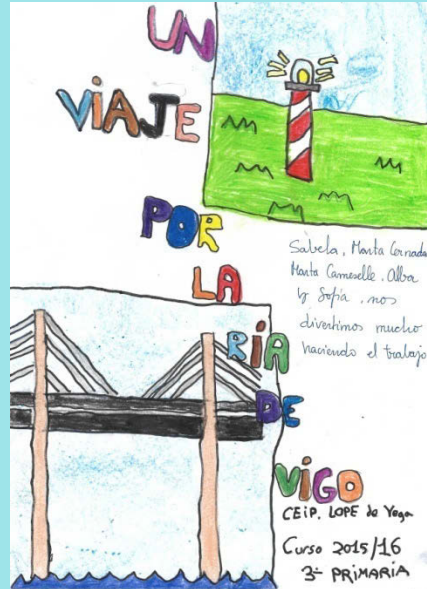 UN
VIAJE
POR
LA
RÍA
DE
VIGO
Sabela, Marta Cernada
Marta Cameselle, Alba
y Sofía, nos
divertimos mucho
haciendo el trabajo
CEIP. LOPE de Vega
Curso 2015/16
3º PRIMARIA